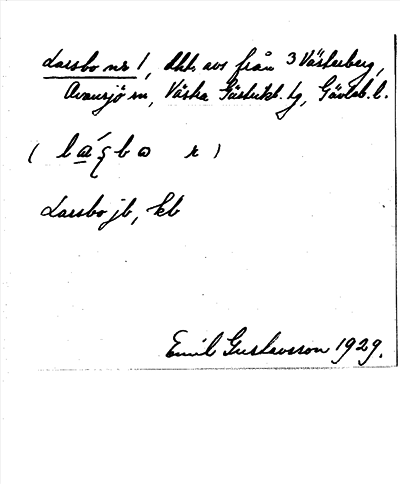 Larsbo nr 1, dkt. avs från 3 Västerberg,
Ovansjö sn, Västra Gästrikl. tg, Gävleb. l.
Larsbo jb, kb
Emil Gustavsson 1929.